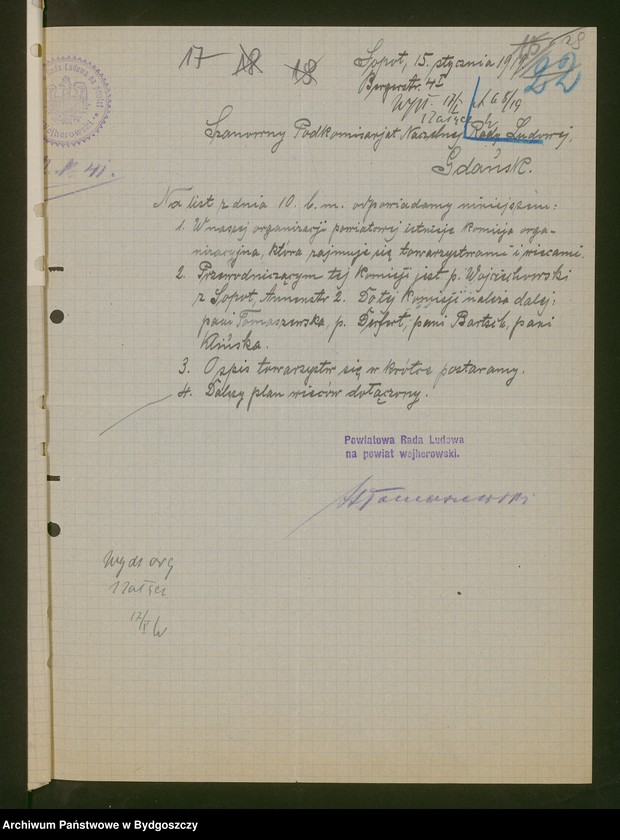 17 18 18
28
22
Sopot, 15. stycznia 1919
Bergerstr. 4I
wpł. 17/I
Szanowny Podkomisarjat Naczelnej Rady Ludowej,
Gdańsk.
Na list z dnia 10. b. m. odpowiadamy niniejszem:
1. W naszej organizacji powiatowej istnieje komisja orga-
nizacyjna, która zajmuje się towarzystwami i wiecami.
2. Przewodniczącym tej komisji jest p. Wojciechowski
z Sopot, Annenstr 2. Do tej komisji należą dalej:
pani Tomaszewska, p. Derfert, pani Bartsch, pani
Klińska.
3. O spis towarzystw się w krótce postaramy.
4. Dalszy plan wieców dołączony.
Powiatowa Rada Ludowa
na powiat wejherowski.
Wydz org
17/I
Archiwum Państwowe w Bydgoszczy